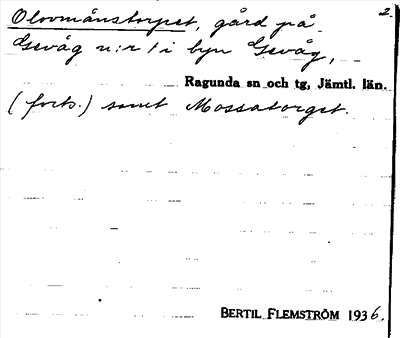 Olovmånstorpet, gård på 2.
Gevåg n:r 1 i byn Gevåg,
Ragunda sn och tg, Jämtl. län.
(forts.) samt Mossatorget.
BERTIL FLEMSTRÖM 1936.